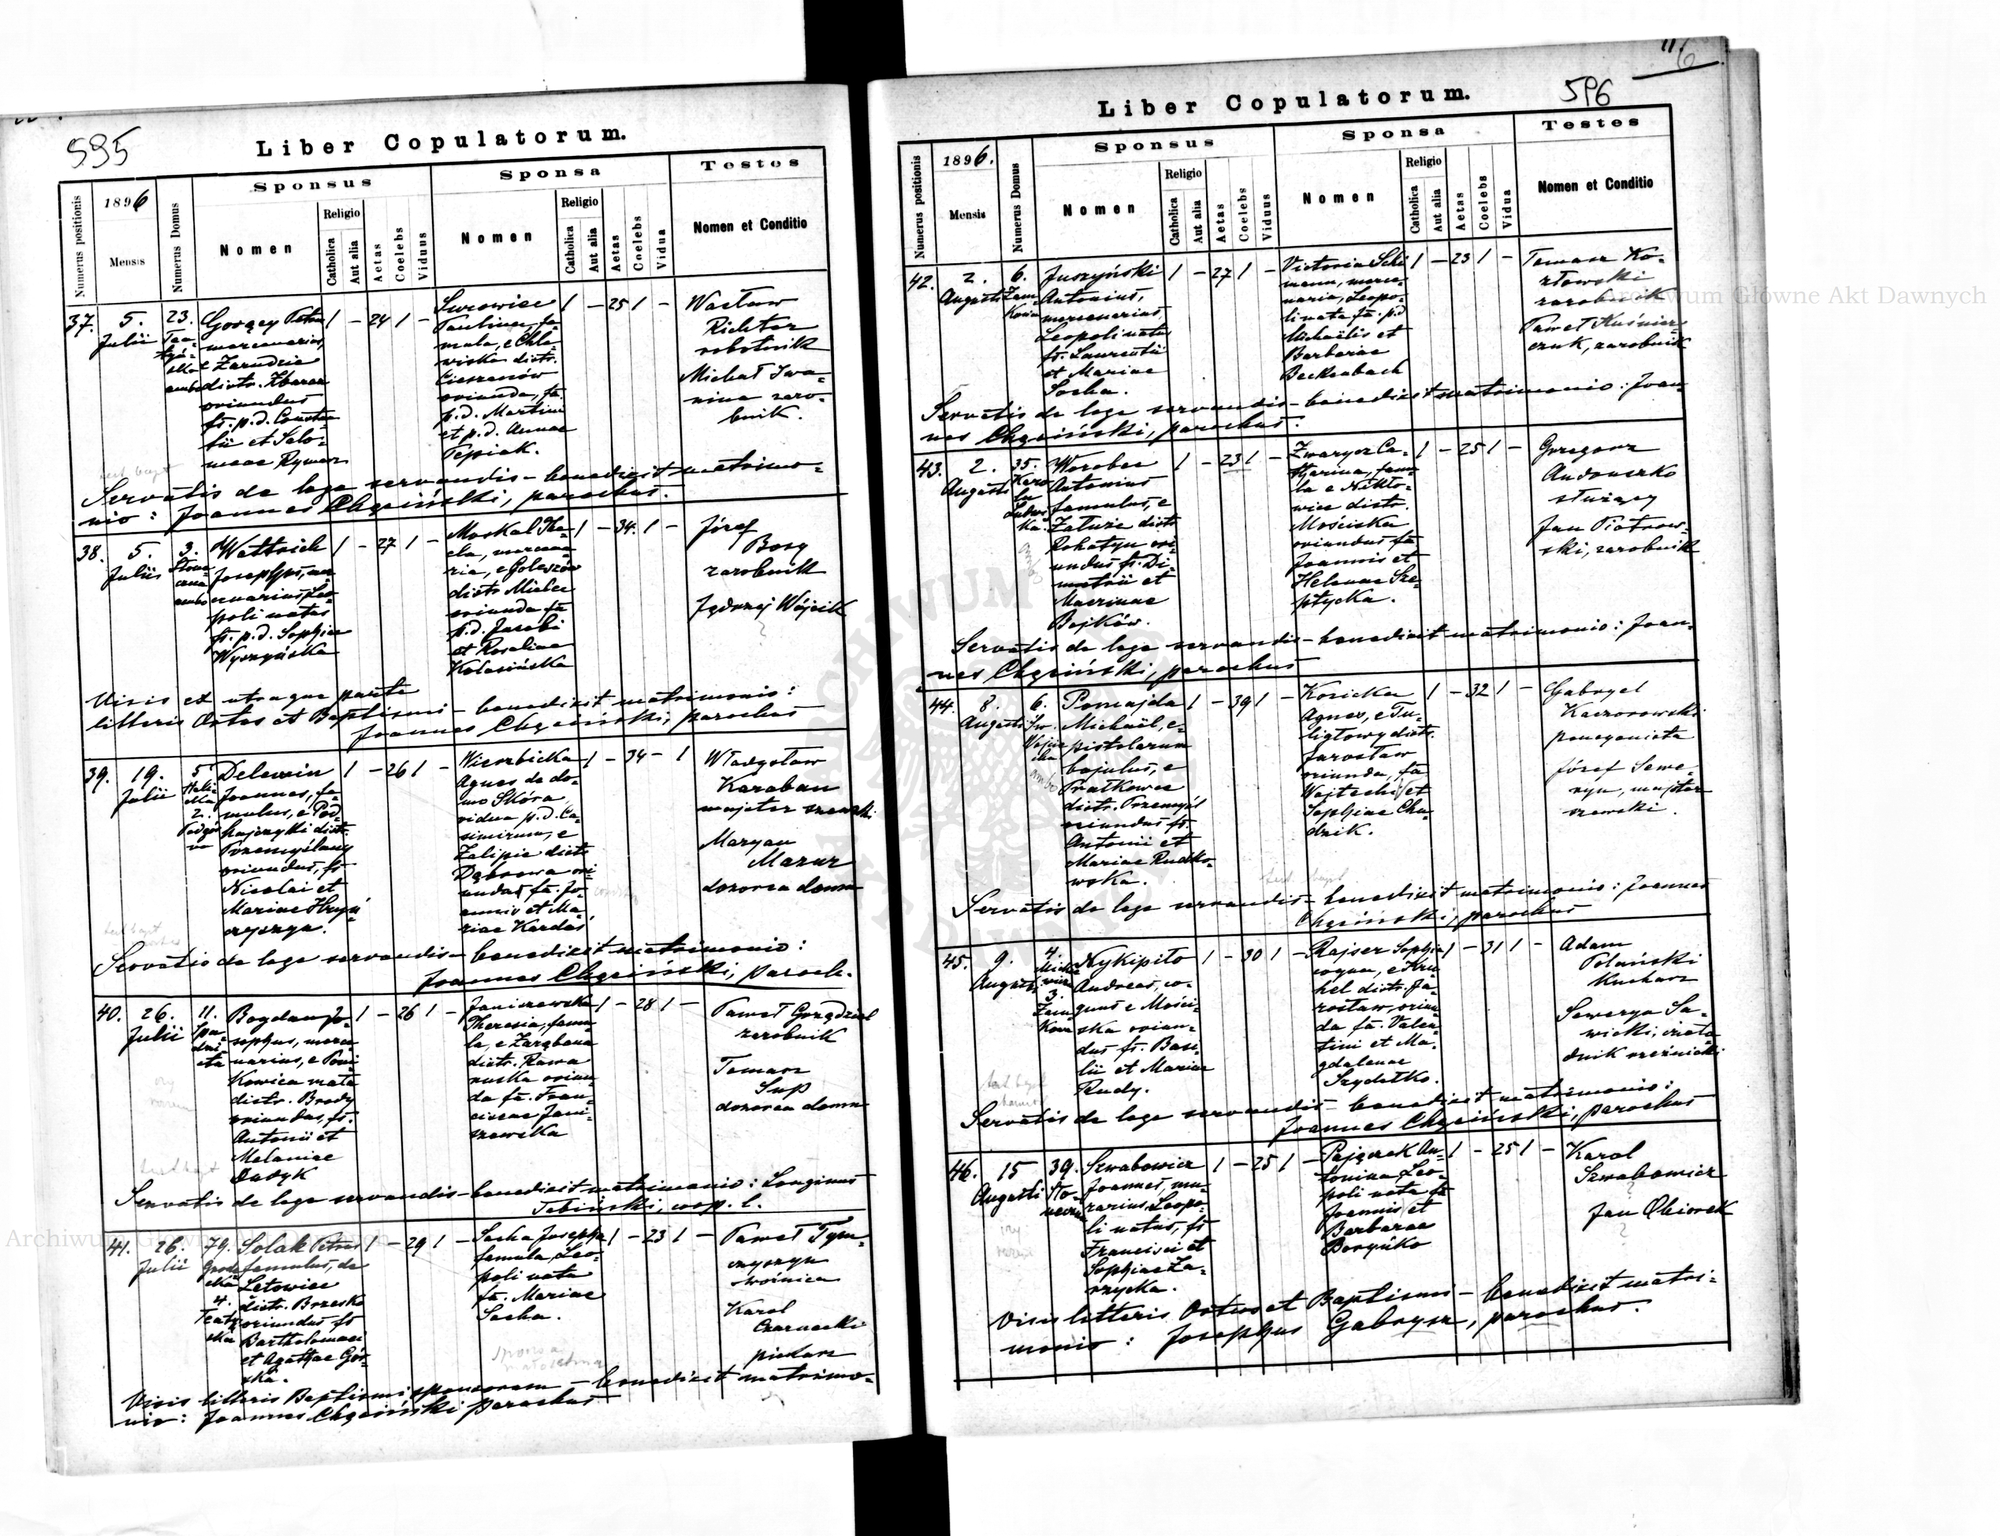 595
Liber Copulatorum.
Numerus positionis
1896
Mensis
Numerus Domus
Sponsus
Nomen
Religio
Catholica
Aut alia
Aetas
Coelebs
Viduus
Sponsa
Nomen
Religio
Catholica
Aut alia
Aetas
Coelebs
Vidua
Testes
Nomen et Conditio
37.
5.
Julii
23.
Gorący Petrus
mercenarius,
e Zarudzie
distr. Zbaraż
oriundus
fs. p.d.
et Salo-
meae Rymar
1 - 24 1 -
Surowiec
Paulina, fa-
mula, e Chle-
wiska distr.
Cieszanów
oriunda, fa.
p.d. Martini
et p.d. Annae
Pępiak.
1 - 25 1 -
Wacław
Richter
robotnik
Michał Iwa-
nina zaro-
bnik.
Servatis de lege servandis - benedixit matrimo-
nio: Joannes Chęciński, parochus.
38.
5.
Julii
3.
Wettrich
Josephus, mer-
cenarius, Leo-
poli natus
fs. p.d. Sophiae
Wyszyńska
1 - 27 1 -
Moskal The-
cla, mercena-
ria, e Goleszów
distr. Mielec
oriunda fa.
p.d. Jacobi
et Rosaliae
Kolasińska
1 - 34. 1 -
Józef
Borg
zarobnik
Jędrzej Wójcik
?
Visis ex utraque parte
litteris Ortus et Baptismi - benedixit matrimonio:
Joannes Chęciński, parochus
39.
19.
Julii
5
2.
Delewin
Joannes, fa-
mulus, e Pod-
hajczyki distr.
Przemyślany
oriundus, fs.
Nicolai et
Mariae Hryń-
czyszyn.
1 - 26 1 -
Wierzbicka
Agnes de do-
mo Skóra
vidua p.d. Ca-
simirum, e
Zalipie distr.
Dąbrowa ori-
unda fa. Jo-
annis et Ma-
riae Kardaś
1 - 34 - 1
Władysław
Karaban
majster szewski
Maryan
Mazur
dozorca domu
Servatis de lege servandis - benedixit matrimonio:
Joannes Chęciński, paroch.
40.
26.
Julii
11.
Bogdan Jo-
sephus, merce-
narius, e Poni-
kowica mała
distr. Brody
oriundus, fs.
Antonii et
Melaniae
Datyk
1 - 26 1 -
Janiszewska
Theresia, famu-
la, e Zarębana
distr. Rawa
ruska oriun-
da fa. Fran-
ciscae Jani-
szewska
1 - 28 1 -
Paweł Gorądziel
zarobnik
Tomasz
Sup
dozorca domu
Servatis de lege servandis - benedixit matrimonio: Longinus
coop. l.
41.
26.
Julii
79.
4.
Solak Petrus
famulus, de
Letowice
distr. Brzesko
oriundus fs
Bartholomaei
et Agathae Gór-
ska.
1 - 29 1 -
Sacha Josepha
famula, Leo-
poli nata
fa. Mariae
Sacha.
1 - 23 1 -
Paweł Tym-
czyszyn
woźnica
Karol
Czarnecki
piekarz
Visis litteris Baptismi sponsorum - benedixit matrimo-
nio: Joannes Chęciński parochus
596
Liber Copulatorum.
Numerus positionis
1896.
Mensis
Numerus Domus
Sponsus
Nomen
Religio
Catholica
Aut alia
Aetas
Coelebs
Viduus
Sponsa
Nomen
Religio
Catholica
Aut alia
Aetas
Coelebs
Vidua
Testes
Nomen et Conditio
42.
2.
Augusti
6.
Juszyński
Antonius,
mercenarius,
Leopoli natus
fs. Laurentii
et Mariae
Socha.
1 - 27 1 -
Victoria Schi-
mann, merce-
naria, Leopo-
li nata fa. p.d
Michaëlis et
Barbarae
Beckenbach
1 - 23 1 -
Tomasz Ko-
złowski
zarobnik
Paweł Kuśnier-
czuk, zarobnik
Servatis de lege servandis - benedixit matrimonio: Joan-
nes Chęciński, parochus.
43.
2.
Augusti
35.
Worobec
Antonius
famulus, e
Załuże distr
Rohatyn ori-
undus fs. Di-
metrii et
Macrinae
Bojków.
1 - 23 1 -
Zwarycz Ca-
tharina, famu-
la e Nikło-
wice distr.
Mościska
oriundus fa
Joannis et
Helenae Sze-
ptycka.
1 - 25 1 -
Grzegorz
Andruszko
służący
Jan Piotrow-
ski, zarobnik
Servatis de lege servandis - benedixit matrimonio: Joan-
nes Chęciński, parochus
44.
8.
Augusti
6.
Pomajda
Michaël, e-
pistolarum
bajulus, e
Prałkowce
distr. Przemyśl
oriundus fs.
Antonii et
Mariae Rudko-
wska.
1 - 39 1 -
Kosicka
Agnes, e Tu-
ligłowy distr.
Jarosław
oriunda, fa
Wojtechi et
Sophiae Cho-
dzik.
1 - 32 1 -
Gabryel
Kaczorowski
Józef Sewe-
ryn, majster
szewski.
Servatis de lege servandis - benedixit matrimonio: Joannes
Chęciński, parochus
45.
9.
Augusti
4.
3.
Nykipiło
Andreas, co-
quus e Mości-
ska oriun-
dus fs. Basi-
lii et Mariae
Rudy.
1 - 30 1 -
Rajser Sophia
coqua, e Kru-
hel distr. Ja-
rosław, oriun-
da fa. Valen-
tini et Ma-
gdalenae
Szydełko.
1 - 31 1 -
Adam
Polański
kucharz
Seweryn Sa-
wicki, czela-
dnik rzeźnicki
Servatis de lege servandis - benedixit matrimonio:
Joannes Chęciński, parochus
46.
15
Augusti
39.
Szwabowicz
Joannes, mu-
rarius, Leopo-
li natus, fs
Francisci et
Sophiae Za-
rzycka.
1 - 25 1 -
Pajączek An-
tonina, Leo-
poli nata fa
Joannis et
Barbarae
Boryńko
1 - 25 1 -
Karol
Szwabowicz
?
Jan Obiorek
?
Visis litteris Ortus et Baptismi - benedixit matri-
monio: Josephus Gabrysz, parochus.
Archiwum Główne Akt Dawnych
Archiwum Główne Akt Dawnych